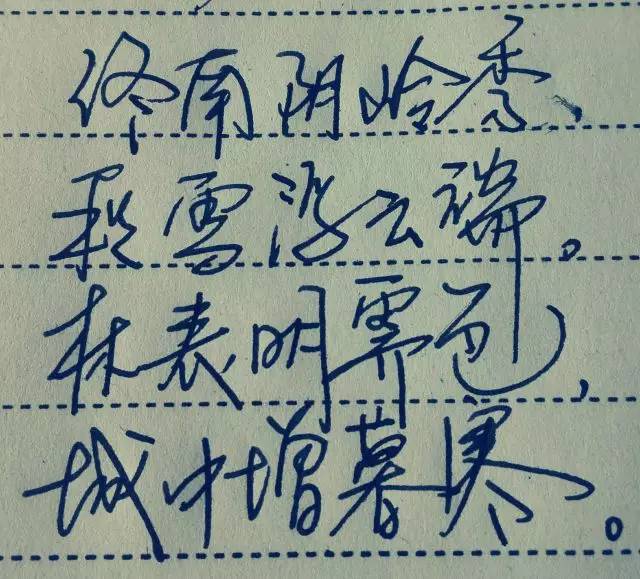 终南阴岭秀，
积雪浮云端。
林表明霁色，
城中增暮寒。